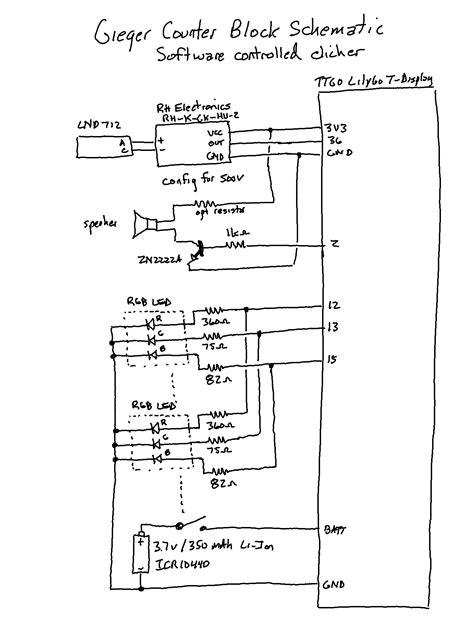 Gieger Counter Block Schematic
Software controlled clicker
TTGO LilyGo T-Display
LND 712
RH Electronics
RH-K-GK-HV-2
A
C
+
-
VCC
OUT
GND
3V3
36
GND
config for 500V
speaker
opt resistor
1kΩ
2N2222A
2
RGB LED
R
G
B
360Ω
75Ω
82Ω
12
13
15
RGB LED
R
G
B
360Ω
75Ω
82Ω
+
-
3.7v / 350 mAh Li-Ion
ICR10440
BATT
GND